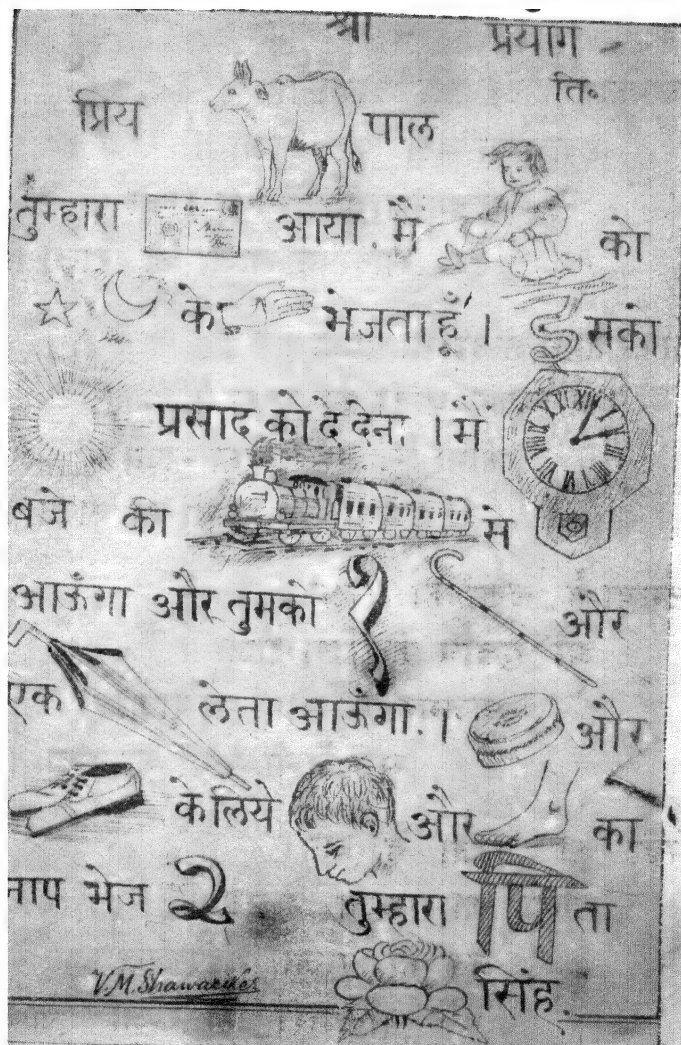 श्री प्रयाग -
ति॰
प्रिय पाल
तुम्हारा आया. मैं को
के भेजता हूँ । इसको
प्रसाद को दे देना । मैं
बजे की से
आऊंगा और तुमको १ और
एक लेता आऊंगा. । और
के लिये और का
नाप भेज 2 तुम्हारा पिता
V.M.Shawaeikes सिंह.